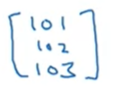 101
102
103